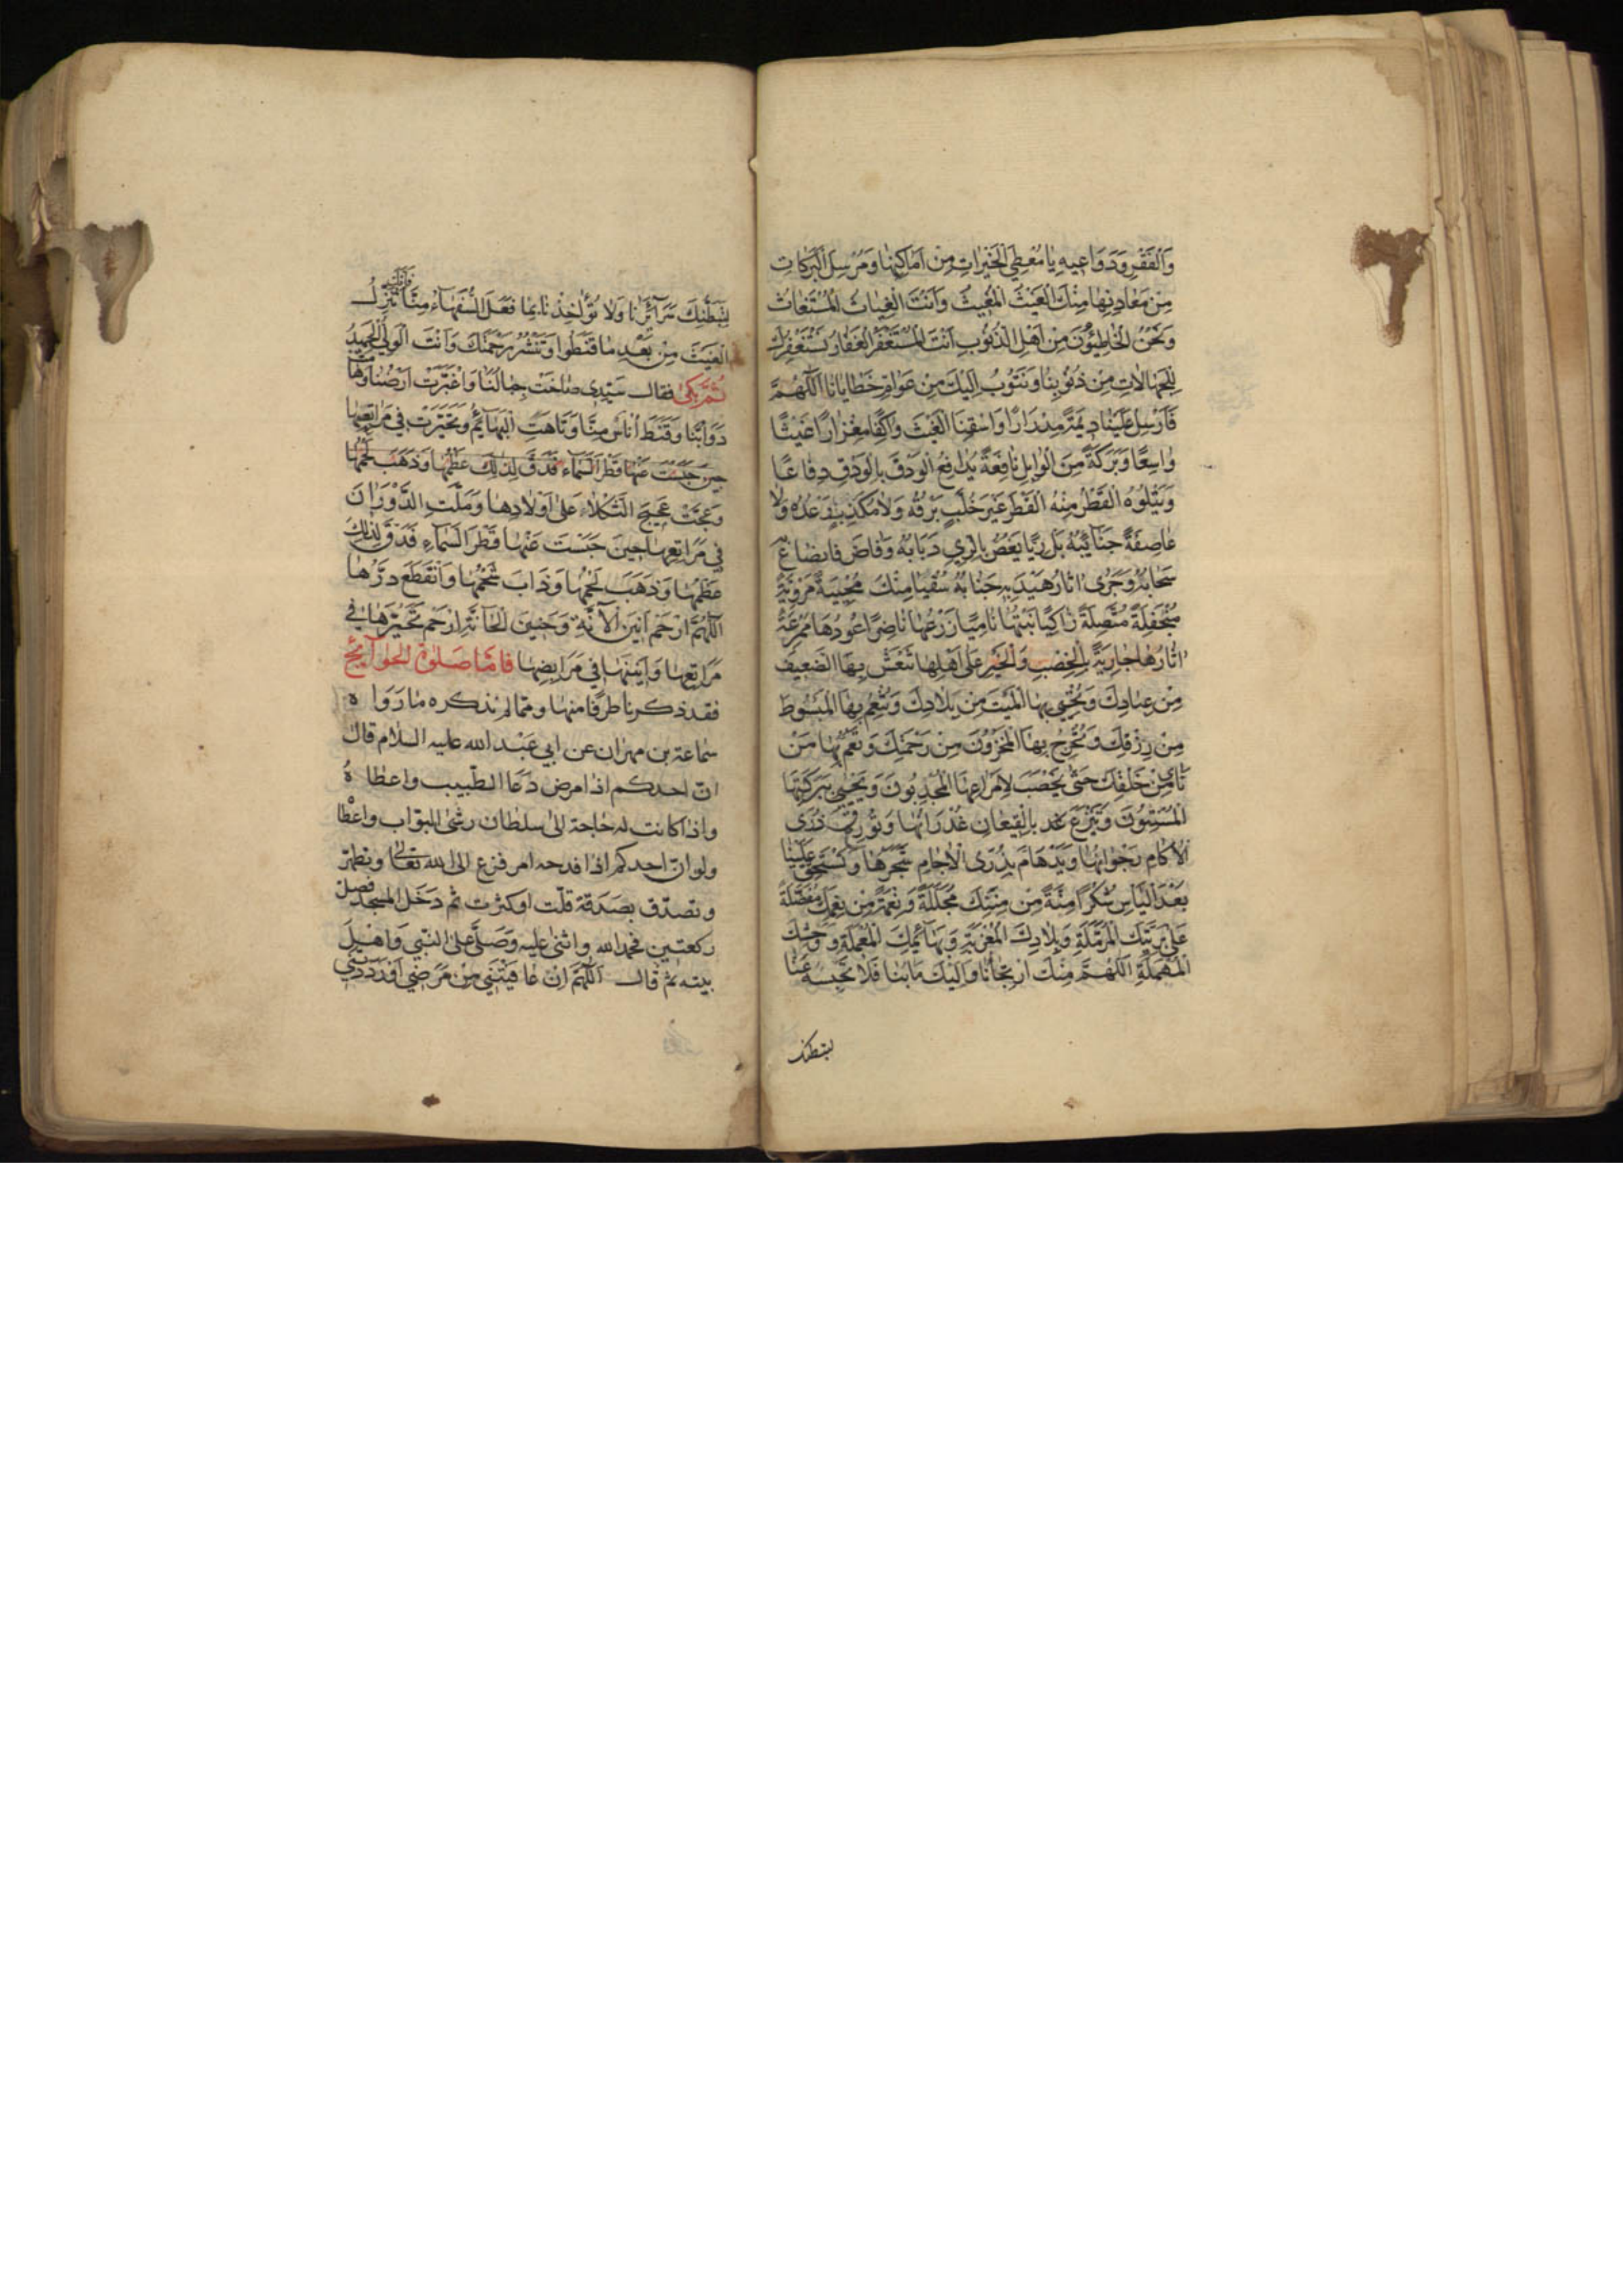 وَالْفَقْرِ وَدَوَاعِيهِ يَا مُعْطِيَ الْخَيْرَاتِ مِنْ اَمَاكِنِهَا وَمُرْسِلَ الْبَرَكَاتِ
مِنْ مَعَادِنِهَا مِنْكَ الْغَيْثُ الْمُغِيثُ وَاَنْتَ الْغِيَاثُ الْمُسْتَغَاثُ
وَنَحْنُ الْخَاطِئُونَ مِنْ اَهْلِ الذُّنُوبِ اَنْتَ الْمُسْتَغْفَرُ الْغَفَّارُ نَسْتَغْفِرُكَ
لِلْجَهَالَاتِ مِنْ ذُنُوبِنَا وَنَتُوبُ اِلَيْكَ مِنْ عَوَامِّ خَطَايَانَا اَللّٰهُمَّ
فَاَرْسِلْ عَلَيْنَا دِيمَةً مِدْرَارًا وَاسْقِنَا الْغَيْثَ وَاكِفًا مِغْزَارًا غَيْثًا
وَاسِعًا وَبَرَكَةً مِنَ الْوَابِلِ نَافِعَةً يُدَافِعُ الْوَدْقَ بِالْوَدْقِ دِفَاعًا
وَيَتْلُوهُ الْقَطْرُ مِنْهُ الْقَطْرَ غَيْرَ خُلَّبٍ بَرْقُهُ وَلَا مُكَذَّبٍ وَعْدُهُ وَلَا
عَاصِفَةً جَنَائِبُهُ بَلْ رِيًّا يَغَصُّ بِالرِّيِّ رَبَابُهُ وَفَاضَ فَانْصَاعَ بِهِ
سَحَابُهُ وَجَرَى اٰثَارُ هَيْدَبِهِ جَنَابَهُ سُقْيَا مِنْكَ مُحْيِيَةً مُرْوِيَةً
مُحْفِلَةً مُتَّصِلَةً زَاكِيًا نَبْتُهَا نَامِيًا زَرْعُهَا نَاضِرًا عُودُهَا مُمْرِعَةً
اٰثَارُهَا جَارِيَةً بِالْخِصْبِ وَالْخَيْرِ عَلَى اَهْلِهَا تَنْعَشُ بِهَا الضَّعِيفَ
مِنْ عِبَادِكَ وَتُحْيِي بِهَا الْمَيِّتَ مِنْ بِلَادِكَ وَتُنْعِمُ بِهَا الْمَبْسُوطَ
مِنْ رِزْقِكَ وَتُخْرِجُ بِهَا الْمَخْزُونَ مِنْ رَحْمَتِكَ وَتَعُمُّ بِهَا مَنْ
نَأَى مِنْ خَلْقِكَ حَتَّى يُخْصِبَ لِاِمْرَاعِهَا الْمُجْدِبُونَ وَيَحْيَى بِبَرَكَتِهَا
الْمُسْنِتُونَ وَتُتْرَعَ بِالْقِيعَانِ غُدْرَانُهَا وَتُورِقَ ذُرَى
الْاٰكَامِ رَجَوَاتُهَا وَيَدْهَامَّ بِذُرَى الْاٰجَامِ شَجَرُهَا وَتَسْتَحِقَّ عَلَيْنَا
بَعْدَ الْيَأْسِ شُكْرًا مِنَّةً مِنْ مِنَنِكَ مُجَلِّلَةً وَنِعْمَةً مِنْ نِعَمِكَ مُفَضَّلَةً
عَلَى بَرِيَّتِكَ الْمُرْمِلَةِ وَبِلَادِكَ الْمُغْرَبَةِ وَبَهَائِمِكَ الْمُعْمَلَةِ وَوَحْشِكَ
الْمُهْمَلَةِ اَللّٰهُمَّ مِنْكَ ارْتِجَاؤُنَا وَاِلَيْكَ مَاٰبُنَا فَلَا تَحْبِسْهُ عَنَّا
لتبطنك
لِتَبَطُّنِكَ سَرَائِرَنَا وَلَا تُؤَاخِذْنَا بِمَا فَعَلَ السُّفَهَاءُ مِنَّا فَاِنَّكَ تُنْزِلُ
الْغَيْثَ مِنْ بَعْدِ مَا قَنَطُوا وَتَنْشُرُ رَحْمَتَكَ وَاَنْتَ الْوَلِيُّ الْحَمِيدُ
ثُمَّ بَكَى فقال سَيِّدِي صَاخَتْ جِبَالُنَا وَاغْبَرَّتْ اَرْضُنَا وَهَامَتْ
دَوَابُّنَا وَقَنَطَ اُنَاسٌ مِنَّا وَتَاهَتِ الْبَهَائِمُ وَتَحَيَّرَتْ فِي مَرَاتِعِهَا
حِينَ حَبَسْتَ عَنْهَا قَطْرَ السَّمَاءِ فَدَقَّ لِذٰلِكَ عَظْمُهَا وَذَهَبَ لَحْمُهَا
وَعَجَّتْ عَجِيجَ الثَّكْلَاءِ عَلَى اَوْلَادِهَا وَمَلَّتِ الدَّوَرَانَ
فِي مَرَاتِعِهَا حِينَ حَبَسْتَ عَنْهَا قَطْرَ السَّمَاءِ فَدَقَّ لِذٰلِكَ
عَظْمُهَا وَذَهَبَ لَحْمُهَا وَذَابَ شَحْمُهَا وَانْقَطَعَ دَرُّهَا
اَللّٰهُمَّ ارْحَمْ اَنِينَ الْاٰنَّةِ وَحَنِينَ الْحَانَّةِ ارْحَمْ تَحَيُّرَهَا فِي
مَرَاتِعِهَا وَاَنِينَهَا فِي مَرَابِضِهَا فَاَمَّا صَلٰوةُ الْحَوَائِجِ
فقد ذكرنا طرفًا منها ومما لم نذكره ما رواه
سماعة بن مهران عن ابي عبد الله عليه السلام قال
ان احدكم اذا مرض دعا الطبيب واعطاهُ
واذا كانت له حاجة الى سلطان رشى البواب واعطا
ولو ان احدكم اذا فدحه امر فزع الى الله تعالى وتطهر
وتصدق بصدقة قلّت او كثرت ثم دخل المسجد فصلى
ركعتين فحمد الله واثنى عليه وصلى على النبي واهل
بيته ثم قال اَللّٰهُمَّ اِنْ عَافَيْتَنِي مِنْ مَرَضِي اَوْ رَدَدْتَنِي